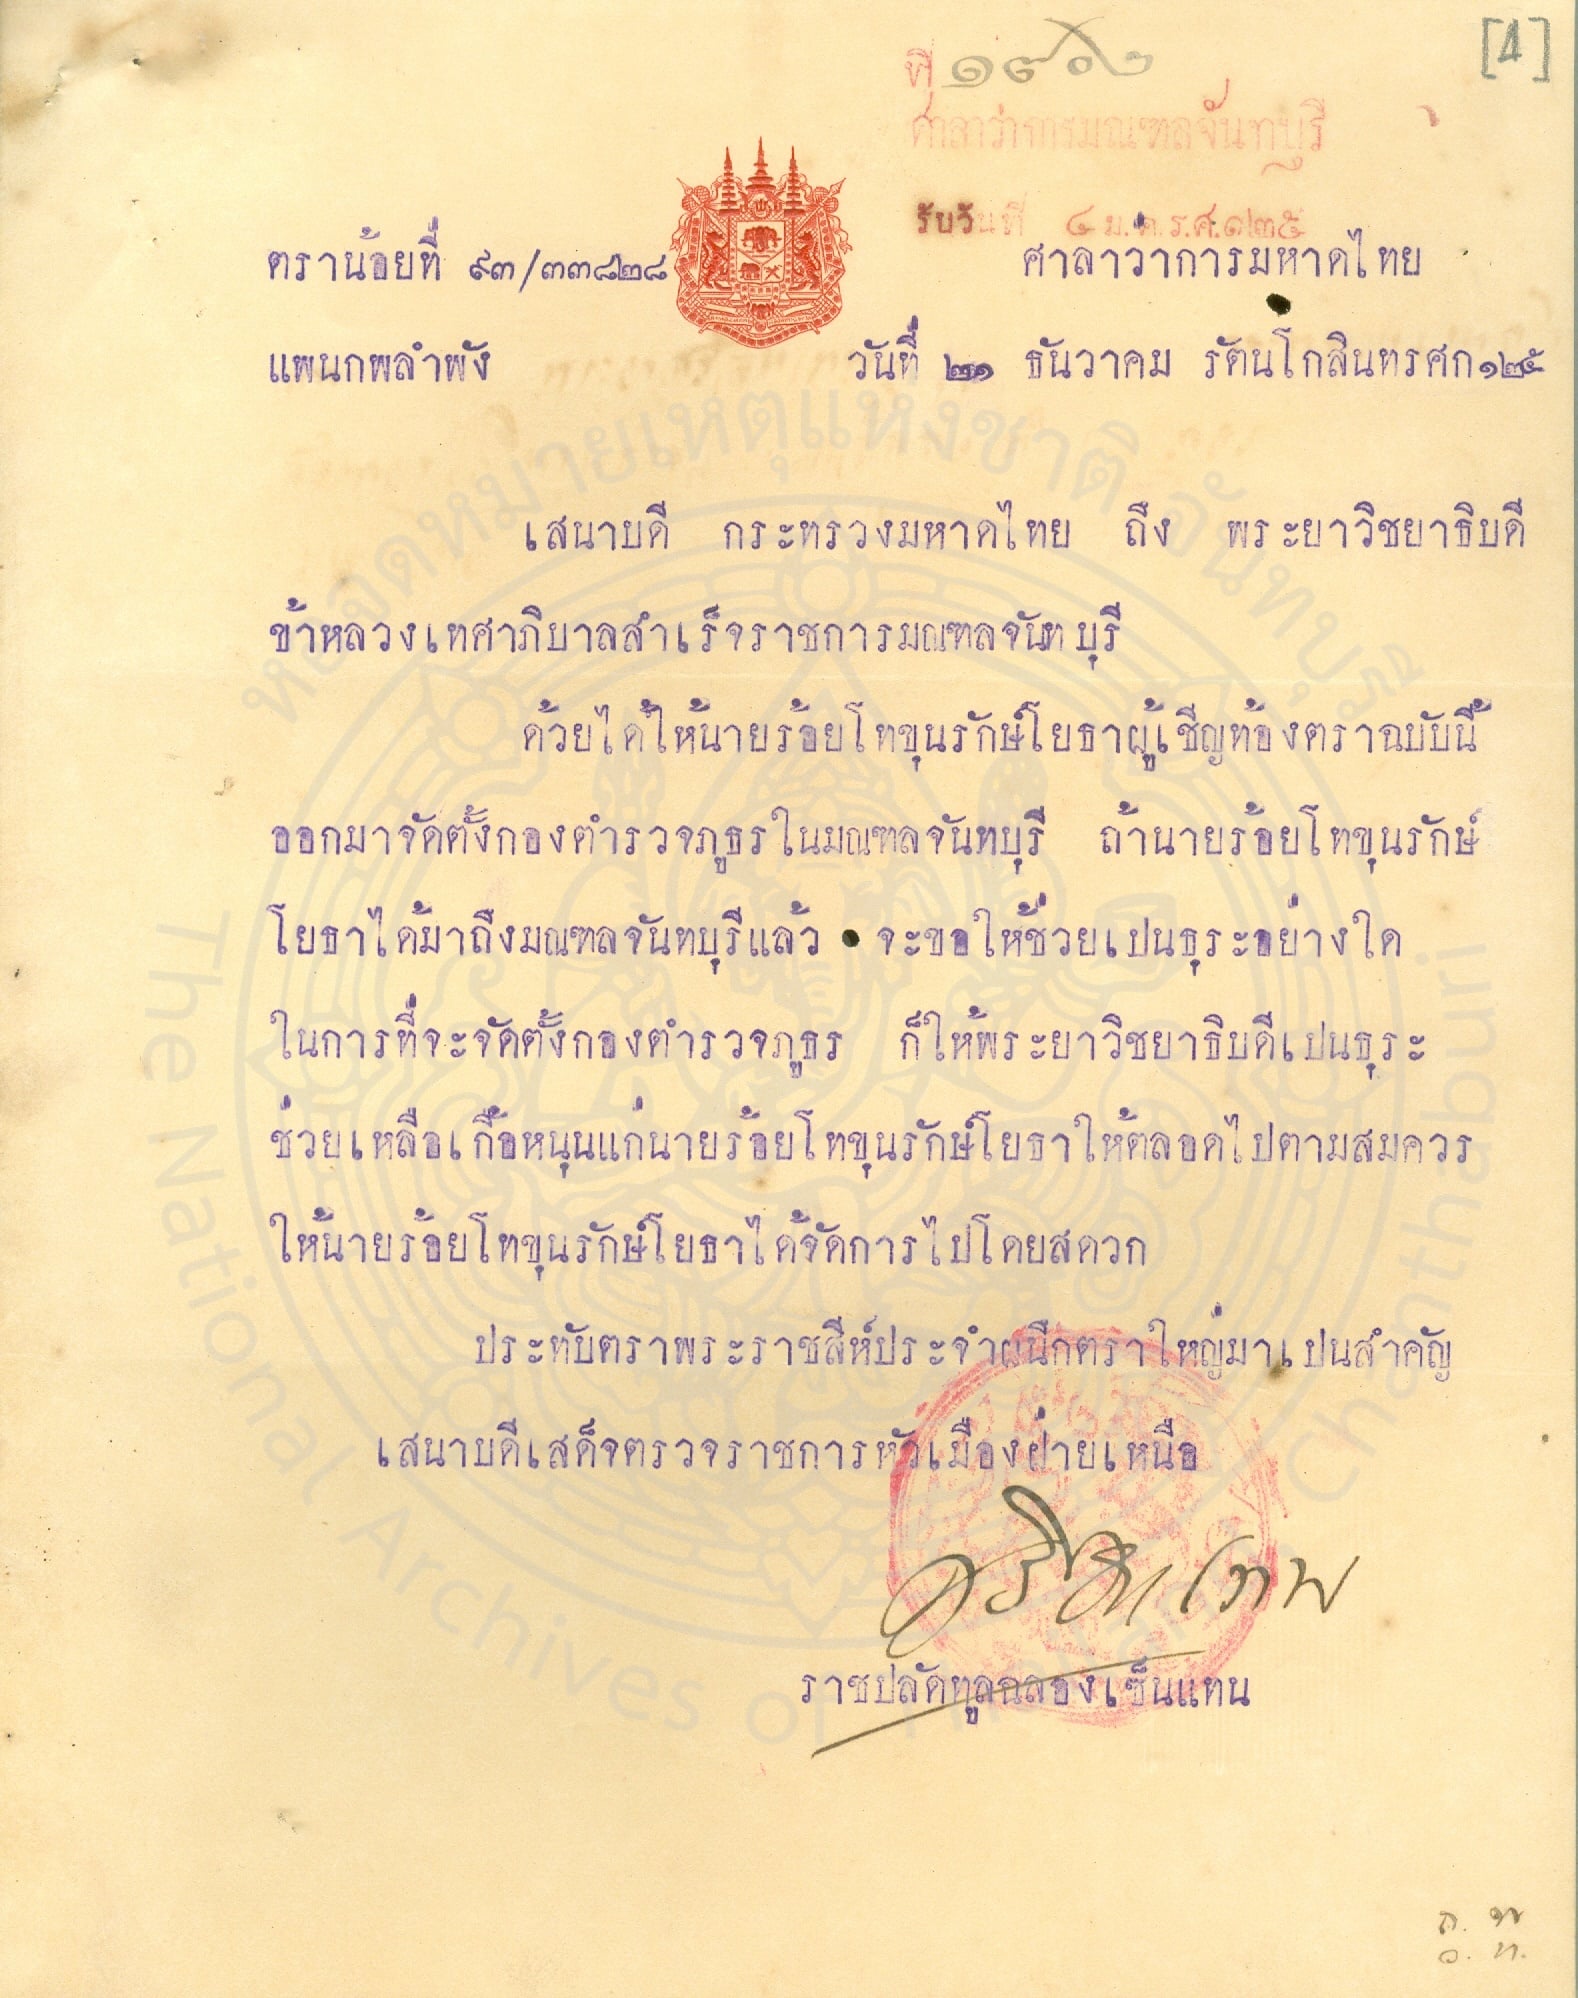 [4]
ที่
ศาลาว่าการมณฑลจันทบุรี
รับวันที่ ๔ ม.ค.ร.ศ.๑๒๕
ตราน้อยที่ ๙๓/๓๓๘๒๘
ศาลาว่าการมหาดไทย
แพนกพลำพัง
วันที่ ๒๑ ธันวาคม รัตนโกสินทรศก๑๒๕
เสนาบดี กระทรวงมหาดไทย ถึง พระยาวิชยาธิบดี
ข้าหลวงเทศาภิบาลสำเร็จราชการมณฑลจันทบุรี
ด้วยได้ให้นายร้อยโทขุนรักษ์โยธาผู้เชีญท้องตราฉบับนี้
ออกมาจัดตั้งกองตำรวจภูธรในมณฑลจันทบุรี ถ้านายร้อยโทขุนรักษ์
โยธาได้มาถึงมณฑลจันทบุรีแล้ว จะขอให้ช่วยเปนธุระอย่างใด
ในการที่จะจัดตั้งกองตำรวจภูธร ก็ให้พระยาวิชยาธิบดีเปนธุระ
ช่วยเหลือเกื้อหนุนแก่นายร้อยโทขุนรักษ์โยธาให้ตลอดไปตามสมควร
ให้นายร้อยโทขุนรักษ์โยธาได้จัดการไปโดยสดวก
ประทับตราพระราชสีห์ประจำผนึกตราใหญ่มาเปนสำคัญ
เสนาบดีเสด็จตรวจราชการหัวเมืองฝ่ายเหนือ
ราชปลัดทูลฉลองเซ็นแทน
หอจดหมายเหตุแห่งชาติ จันทบุรี
The National Archives of Thailand Chanthaburi